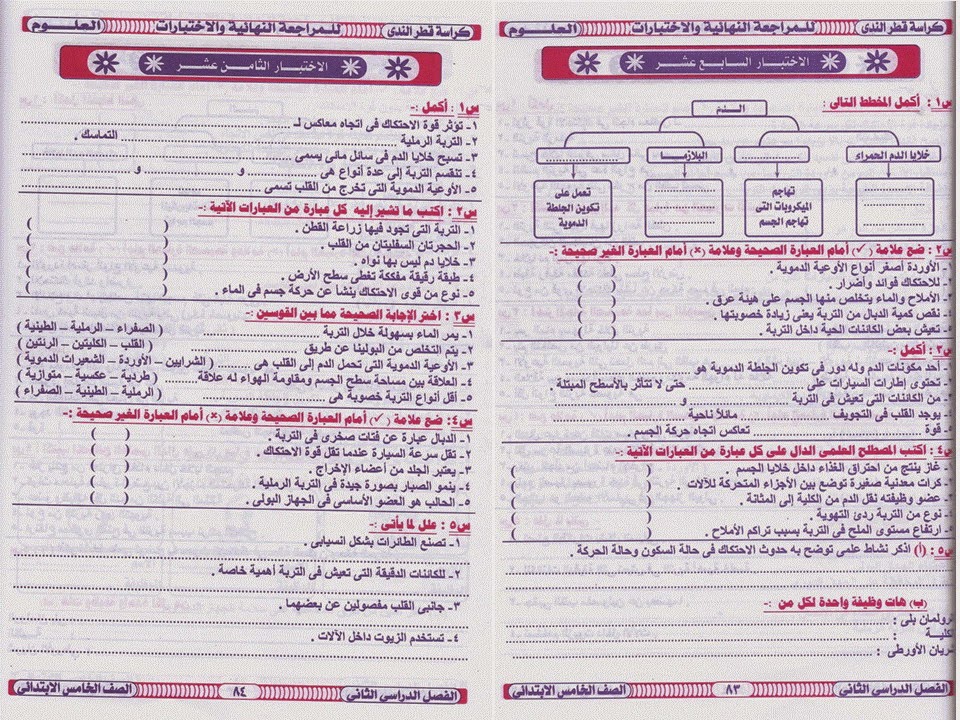 كراسة قطر الندى للمراجعة النهائية والاختبارات العلوم
الاختبار السابع عشر
س١ : أكمل المخطط التالى :
الدم
خلايا الدم الحمراء
البلازما
تهاجم
الميكروبات التى
تهاجم الجسم
تعمل على
تكوين الجلطة
الدموية
س٢ : ضع علامة (✓) أمام العبارة الصحيحة وعلامة (×) أمام العبارة الغير صحيحة :-
١- الأوردة أصغر أنواع الأوعية الدموية . ( )
٢- للاحتكاك فوائد وأضرار . ( )
٣- الأملاح والماء يتخلص منها الجسم على هيئة عرق . ( )
٤- نقص كمية الدبال من التربة يعنى زيادة خصوبتها . ( )
٥- تعيش بعض الكائنات الحية داخل التربة . ( )
س٣ : أكمل :-
١- أحد مكونات الدم وله دور فى تكوين الجلطة الدموية هو
٢- تحتوى إطارات السيارات على حتى لا تتأثر بالأسطح المبتلة .
٣- من الكائنات التى تعيش فى التربة و
٤- يوجد القلب فى التجويف مائلاً ناحية
٥- قوة تعاكس اتجاه حركة الجسم .
س٤ : اكتب المصطلح العلمى الدال على كل عبارة من العبارات الآتية :-
١- غاز ينتج من احتراق الغذاء داخل خلايا الجسم . ( )
٢- كرات معدنية صغيرة توضع بين الأجزاء المتحركة للآلات . ( )
٣- عضو وظيفته نقل الدم من الكلية إلى المثانة . ( )
٤- نوع من التربة ردئ التهوية . ( )
٥- ارتفاع مستوى الملح فى التربة بسبب تراكم الأملاح . ( )
س٥ : (أ) اذكر نشاط علمى توضح به حدوث الاحتكاك فى حالة السكون وحالة الحركة .
(ب) هات وظيفة واحدة لكل من :-
رولمان بلى :
الكلية :
شريان الأورطى :
الفصل الدراسى الثانى ٨٣ الصف الخامس الابتدائى
كراسة قطر الندى للمراجعة النهائية والاختبارات العلوم
الاختبار الثامن عشر
س١ : أكمل :-
١- تؤثر قوة الاحتكاك فى اتجاه معاكس لـ
٢- التربة الرملية التماسك .
٣- تسبح خلايا الدم فى سائل مائى يسمى
٤- تنقسم التربة إلى عدة أنواع هى و و
٥- الأوعية الدموية التى تخرج من القلب تسمى
س٢ : اكتب ما تشير إليه كل عبارة من العبارات الآتية :-
١- التربة التى تجود فيها زراعة القطن . ( )
٢- الحجرتان السفليتان من القلب . ( )
٣- خلايا دم ليس بها نواه . ( )
٤- طبقة رقيقة مفككة تغطى سطح الأرض . ( )
٥- نوع من قوى الاحتكاك ينشأ عن حركة جسم فى الماء . ( )
س٣ : اختر الإجابة الصحيحة مما بين القوسين :-
١- يمر الماء بسهولة خلال التربة ( الصفراء – الرملية – الطينية )
٢- يتم التخلص من البولينا عن طريق ( القلب – الكليتين – الرئتين )
٣- الأوعية الدموية التى تحمل الدم إلى القلب هى ( الشرايين – الأوردة – الشعيرات الدموية )
٤- العلاقة بين مساحة سطح الجسم ومقاومة الهواء له علاقة ( طردية – عكسية – متوازية )
٥- أقل أنواع التربة خصوبة هى ( الرملية – الطينية – الصفراء )
س٤ : ضع علامة (✓) أمام العبارة الصحيحة وعلامة (×) أمام العبارة الغير صحيحة :-
١- الدبال عبارة عن فتات صخرى فى التربة . ( )
٢- تقل سرعة السيارة عندما تقل قوة الاحتكاك . ( )
٣- يعتبر الجلد من أعضاء الإخراج . ( )
٤- ينمو الصبار بصورة جيدة فى التربة الرملية . ( )
٥- الحالب هو العضو الأساسى فى الجهاز البولى . ( )
س٥ : علل لما يأتى :-
١- تصنع الطائرات بشكل انسيابى .
٢- للكائنات الدقيقة التى تعيش فى التربة أهمية خاصة .
٣- جانبى القلب مفصولين عن بعضهما .
٤- تستخدم الزيوت داخل الآلات .
الفصل الدراسى الثانى ٨٤ الصف الخامس الابتدائى